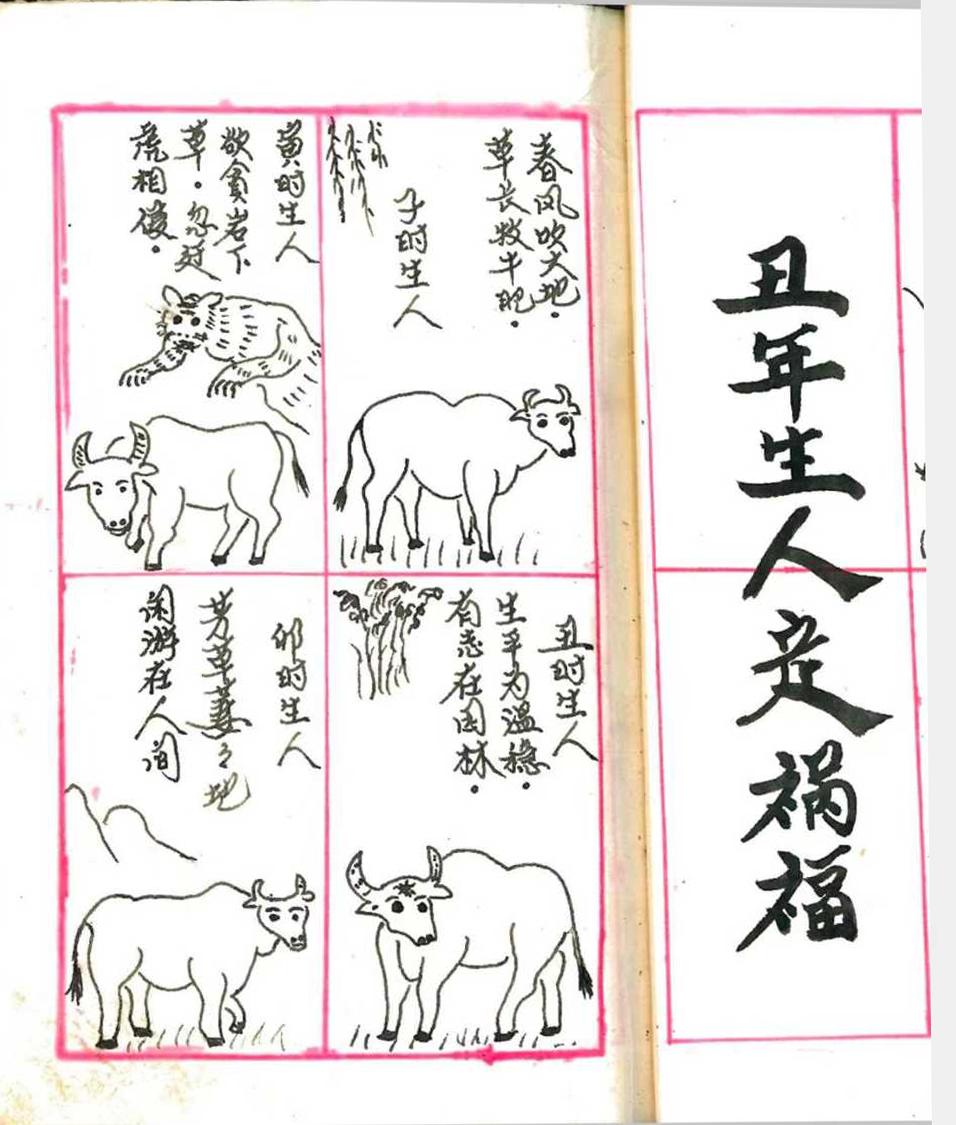 丑年生人定祸福
春风吹大地.
草长牧牛肥.
子时生人
丑时生人
生平为温稳.
有志在园林.
寅时生人
欲貪岩下
草.忽廷
虎相侵.
卯时生人
芳草萋々地
闲游在人间